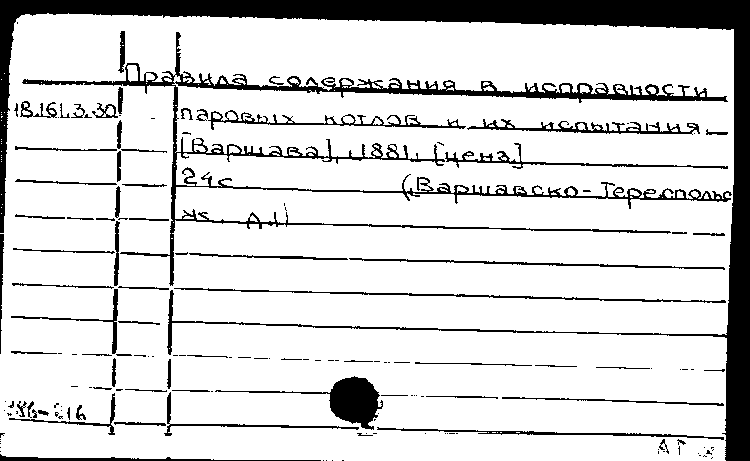 Правила содержания в исправности
18.161.3.30 паровых котлов и их испытания.
[Варшава], 1881, [ценз.]
24с. (Варшавско-Тереспольс
ж. д.)